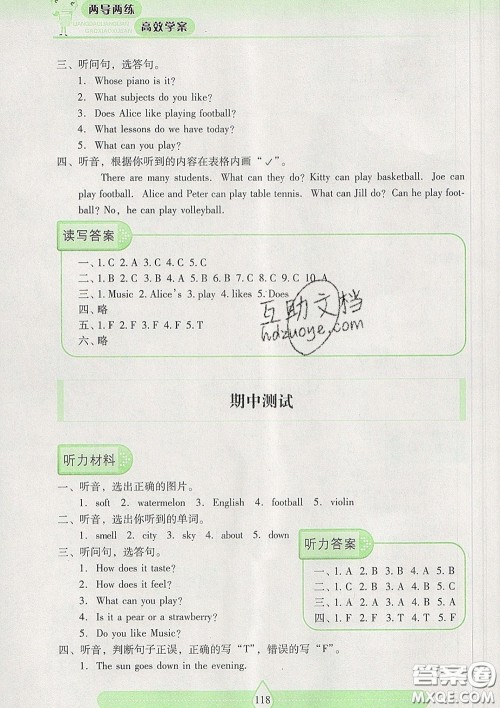 两导两练
高效学案
三、听问句，选答句。
1. Whose piano is it?
2. What subjects do you like?
3. Does Alice like playing football?
4. What lessons do we have today?
5. What can you play?
四、听音，根据你听到的内容在表格内画“✓”。
There are many students. What can they do? Kitty can play basketball. Joe can
play football. Alice and Peter can play table tennis. What can Jill do? Can he play foot-
ball? No, he can play volleyball.
读写答案
一、1. C 2. A 3. C 4. C 5. C
二、1. B 2. C 3. C 4. B 5. A 6. B 7. C 8. C 9. C 10. A
三、1. Music 2. Alice's 3. play 4. likes 5. Does
四、略
五、1. F 2. F 3. F 4. F 5. T
六、略
互助文档
hdzuoye.com
期中测试
听力材料
一、听音，选出正确的图片。
1. soft 2. watermelon 3. English 4. football 5. violin
二、听音，选出你听到的单词。
1. smell 2. city 3. sky 4. about 5. down
三、听问句，选答句。
1. How does it taste?
2. How does it feel?
3. What can you play?
4. Is it a pear or a strawberry?
5. Do you like Music?
四、听音，判断句子正误，正确的写“T”，错误的写“F”。
1. The sun goes down in the evening.
听力答案
一、1. A 2. B 3. B 4. A 5. B
二、1. A 2. B 3. A 4. B 5. C
三、1. A 2. B 3. A 4. A 5. B
四、1. T 2. F 3. F 4. F 5. T
118
答案圈
MXQE.COM